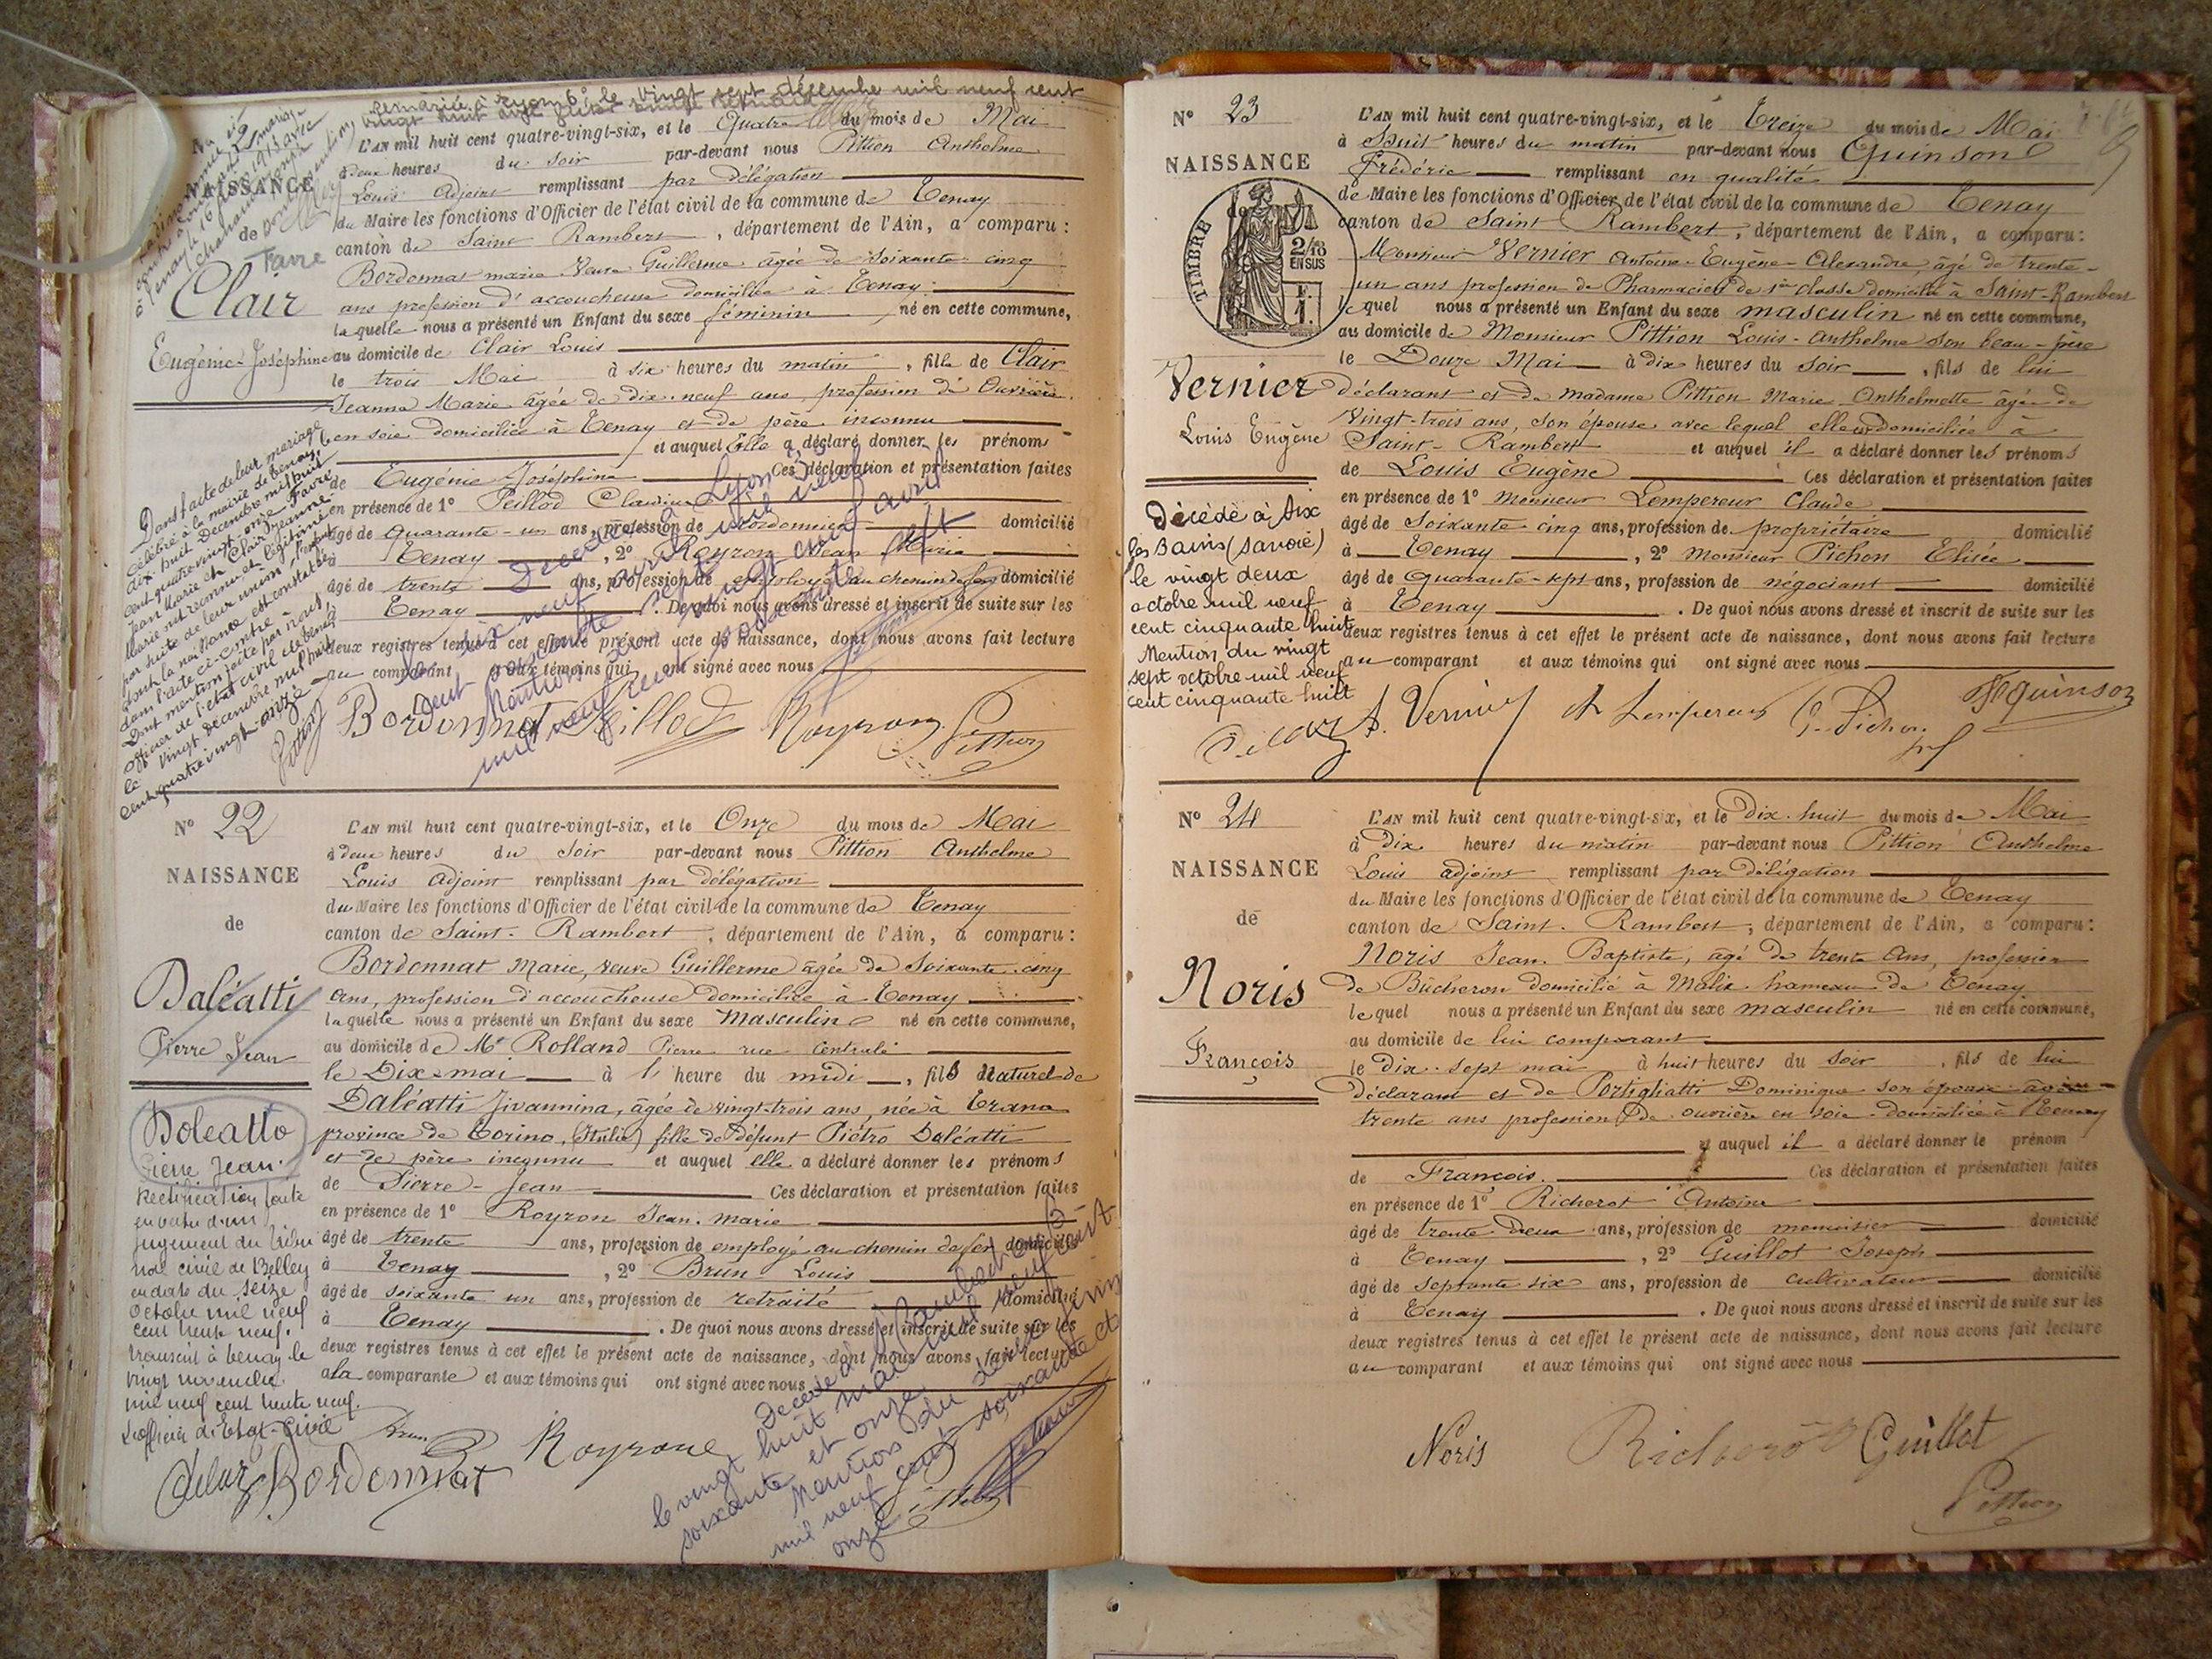 remariée à Lyon 6° le vingt sept décembre mil neuf cent
vingt huit avec
L'AN mil huit cent quatre-vingt-six, et le Quatre du mois de Mai
à deux heures du soir par-devant nous Pittion Anthelme
Louis adjoint remplissant par délégation
du Maire les fonctions d'Officier de l'état civil de la commune de Tenay
canton de Saint Rambert, département de l'Ain, a comparu :
Bordonnat marie Veuve Guillerme âgée de soixante-cinq
ans profession d'accoucheuse domiciliée à Tenay
laquelle nous a présenté un Enfant du sexe féminin né en cette commune,
au domicile de Clair Louis
le trois Mai à six heures du matin, fille de Clair
Jeanne Marie âgée de dix-neuf ans, profession d'Ouvrière
en soie domiciliée à Tenay et de père inconnu
et auquel Elle a déclaré donner les prénoms
de Eugénie Joséphine Ces déclaration et présentation faites
en présence de 1° Peillod Claudius
âgé de quarante-un ans, profession de cordonnier domicilié
à Tenay, 2° Royron Jean Marie
âgé de trente ans, profession de employé au chemin de fer domicilié
à Tenay. De quoi nous avons dressé et inscrit de suite sur les
deux registres tenus à cet effet le présent acte de naissance, dont nous avons fait lecture
au comparant et aux témoins qui ont signé avec nous
Bordonnat Peillod Royron Pittion
NAISSANCE
de
Favre
Clair
Eugénie-Joséphine
Dans l'acte de leur mariage
célébré à la mairie de Tenay,
dix huit Décembre mil huit
cent quatre vingt-onze Favre
Jean Marie et Clair Jeanne
Marie ont reconnu et légitimé
par suite de leur union l'enfant
dont la naissance est constatée
dans l'acte ci-contre
Dont mention faite par nous,
officier de l'état civil de Tenay
le vingt décembre mil huit
cent quatre vingt-onze
Pittion
Décédée à Lyon
le dix neuf avril mil neuf
cent soixante sept
Mention du vingt cinq avril
mil neuf cent soixante sept
N° 22
NAISSANCE
de
Daléatti
Pierre Jean
Doleatto
Pierre Jean.
Rectification faite
en vertu d'un
jugement du tribu
nal civil de Belley
en date du seize
octobre mil neuf
cent trente neuf.
transcrit à Tenay le
vingt novembre
mil neuf cent trente neuf.
L'officier d'Etat-Civil
L'AN mil huit cent quatre-vingt-six, et le Onze du mois de Mai
à deux heures du soir par-devant nous Pittion Anthelme
Louis adjoint remplissant par délégation
du Maire les fonctions d'Officier de l'état civil de la commune de Tenay
canton de Saint-Rambert, département de l'Ain, a comparu :
Bordonnat Marie, Veuve Guillerme âgée de Soixante-cinq
ans, profession d'accoucheuse domiciliée à Tenay
laquelle nous a présenté un Enfant du sexe Masculin né en cette commune,
au domicile de Mr Rolland Pierre rue Centrale
le Dix-mai à l' heure du midi, fils Naturel de
Daléatti Jivannina, âgée de vingt-trois ans, née à Trana
province de Torino, (Italie) fille de défunt Piétro Daléatti
et de père inconnu et auquel elle a déclaré donner les prénoms
de Pierre-Jean Ces déclaration et présentation faites
en présence de 1° Royron Jean-marie
âgé de trente ans, profession de employé au chemin de fer domicilié
à Tenay, 2° Brun Louis
âgé de soixante un ans, profession de retraité domicilié
à Tenay. De quoi nous avons dressé et inscrit de suite sur les
deux registres tenus à cet effet le présent acte de naissance, dont nous avons fait lecture
a la comparante et aux témoins qui ont signé avec nous
Brun Royron
Bordonnat
Pittion
Décédé à St Rambert en B
le vingt huit mai mil neuf cent
soixante et onze
Mention du deux juin
mil neuf cent soixante et
onze
N° 23
NAISSANCE
de
TIMBRE
2/10
EN SUS
Vernier
Louis Eugène
Décédé à Aix
les Bains (Savoie)
le vingt deux
octobre mil neuf
cent cinquante huit
Mention du vingt
sept octobre mil neuf
cent cinquante huit
L'AN mil huit cent quatre-vingt-six, et le Treize du mois de Mai
à Huit heures du matin par-devant nous Quinson
Frédéric remplissant en qualité
de Maire les fonctions d'Officier de l'état civil de la commune de Tenay
canton de Saint Rambert, département de l'Ain, a comparu :
Monsieur Vernier Antoine-Eugène-Alexandre, âgé de trente-
un ans profession de Pharmacien de 1re classe domicilié à Saint-Rambert
lequel nous a présenté un Enfant du sexe masculin né en cette commune,
au domicile de Monsieur Pittion Louis-Anthelme son beau-père
le Douze Mai à dix heures du soir, fils de lui
déclarant et de madame Pittion Marie Anthelmette âgée de
vingt-trois ans, son épouse avec lequel elle est domiciliée à
Saint-Rambert et auquel il a déclaré donner les prénoms
de Louis Eugène Ces déclaration et présentation faites
en présence de 1° monsieur Lempereur Claude
âgé de Soixante-cinq ans, profession de propriétaire domicilié
à Tenay, 2° Monsieur Pichon Elisée
âgé de Quarante-sept ans, profession de négociant domicilié
à Tenay. De quoi nous avons dressé et inscrit de suite sur les
deux registres tenus à cet effet le présent acte de naissance, dont nous avons fait lecture
au comparant et aux témoins qui ont signé avec nous
A. Vernier Lempereur Pichon Quinson
N° 24
NAISSANCE
de
Noris
François
L'AN mil huit cent quatre-vingt-six, et le Dix-huit du mois de Mai
à Dix heures du matin par-devant nous Pittion Anthelme
Louis adjoint remplissant par délégation
du Maire les fonctions d'Officier de l'état civil de la commune de Tenay
canton de Saint-Rambert, département de l'Ain, a comparu :
Noris Jean Baptiste, âgé de trente ans, profession
de Bûcheron domicilié à Malix hameau de Tenay
lequel nous a présenté un Enfant du sexe masculin né en cette commune,
au domicile de lui comparant
le dix-sept mai à huit heures du soir, fils de lui
déclarant et de Portighatti Dominique son épouse
trente ans profession de ouvrière en soie domiciliée à Tenay
et auquel il a déclaré donner le prénom
de François. Ces déclaration et présentation faites
en présence de 1° Richerot Antoine
âgé de trente deux ans, profession de menuisier domicilié
à Tenay, 2° Guillot Joseph
âgé de septante six ans, profession de cultivateur domicilié
à Tenay. De quoi nous avons dressé et inscrit de suite sur les
deux registres tenus à cet effet le présent acte de naissance, dont nous avons fait lecture
au comparant et aux témoins qui ont signé avec nous
Noris Guillot
Pittion